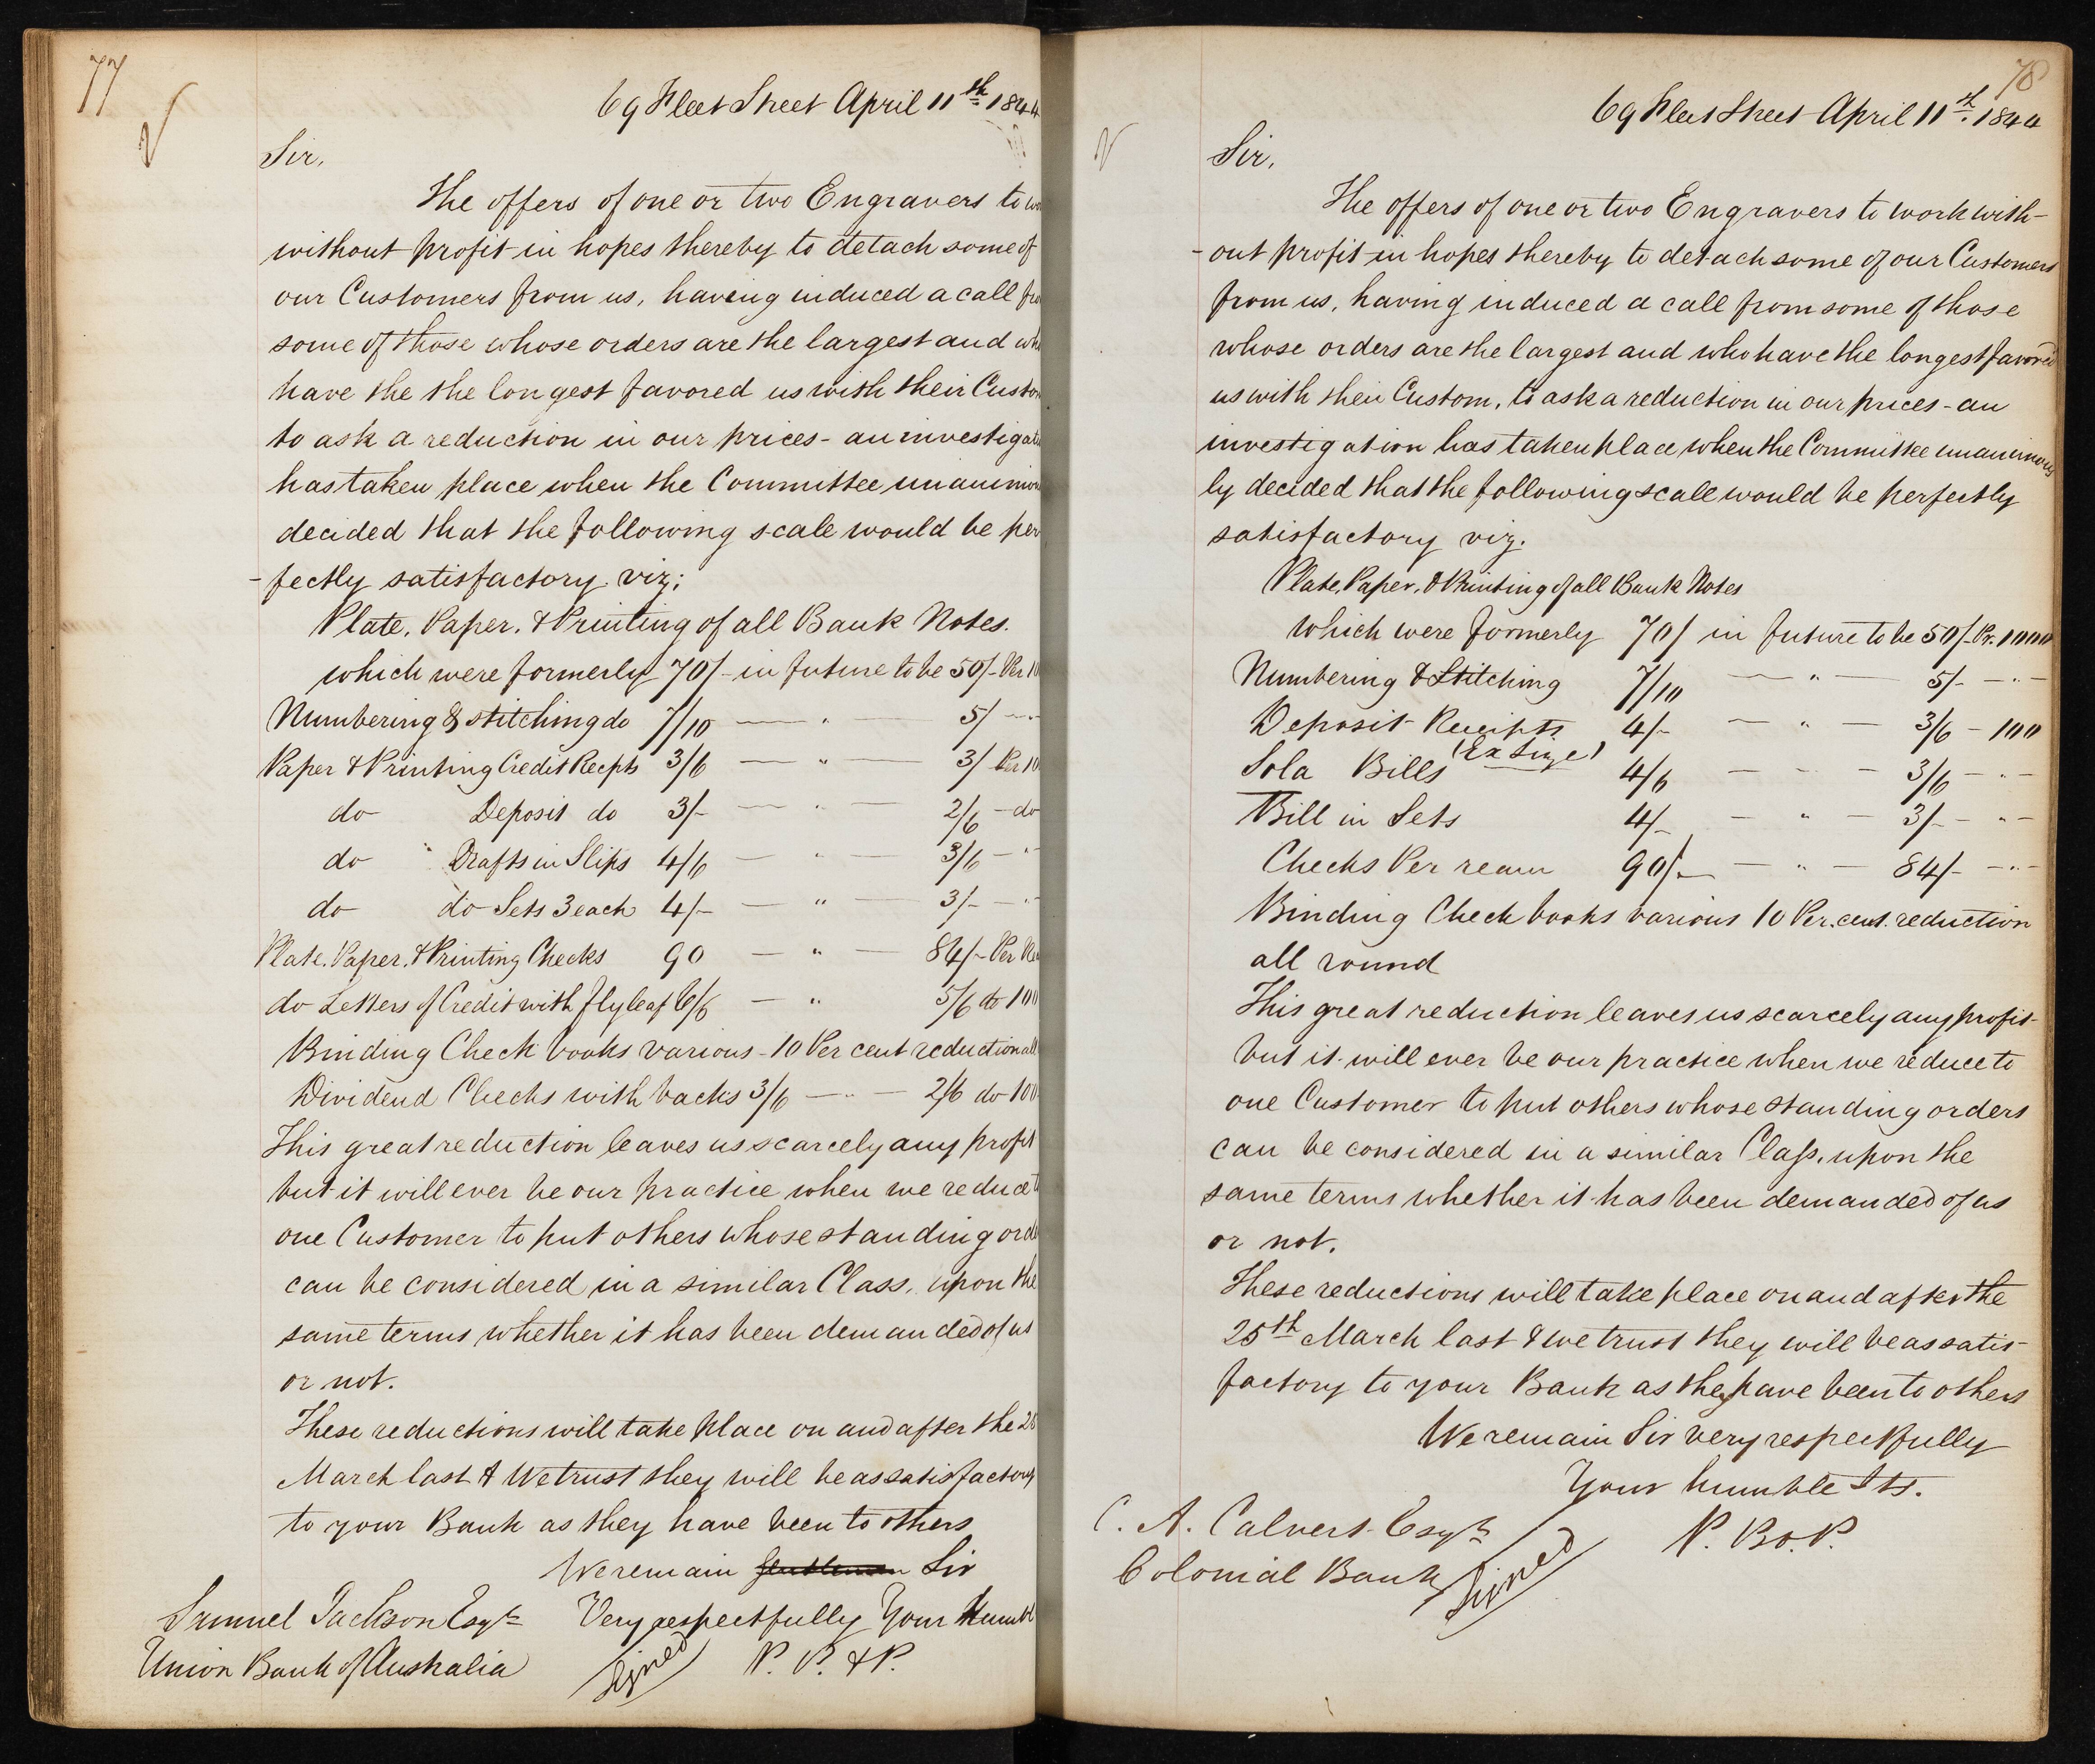 77
69 Fleet Street April 11th 1844
Sir,
The offers of one or two Engravers to
without profit in hopes thereby to detach some of
our Customers from us, having induced a call
some of those whose orders are the largest and
have the the longest favored us with their
to ask a reduction in our prices - an
has taken place when the Committee
decided that the following scale would be per
-fectly satisfactory viz;
Plate, Paper, & Printing of all Bank Notes.
which were formerly 70/- in future to be 50/- Per
Numbering & stitching do 7/10 — " — 5/ - " -
Paper & Printing Credit Recpts 3/6 — " — 3/ Per
do Deposit do 3/- — " — 2/6 - do
do " Drafts in Slips 4/6 — " — 3/6 - "
do do Sets 3 each 4/- — " — 3/- - "
Plate, Paper, & Printing Checks 90 — " — 84/- Per
do Letters of Credit with fly leaf 6/6 — " — 5/6 do 100
Binding Check books various - 10 Per cent reduction all
Dividend Checks with backs 3/6 — " — 2/6 do 100
This great reduction leaves us scarcely any profit
but it will ever be our practice when we reduce
one Customer to put others whose standing
can be considered in a similar Class, upon the
same terms whether it has been demanded of us
or not.
These reductions will take place on and after the
March last & We trust they will be as satisfactory
to your Bank as they have been to others
We remain Gentlemen Sir
Samuel Jackson Esqre Very respectfully Your
Union Bank of Australia Signed P. B. & P.
78
69 Fleet Street April 11th. 1844
Sir,
The offers of one or two Engravers to work with-
-out profit in hopes thereby to detach some of our Customers
from us, having induced a call from some of those
whose orders are the largest and who have the longest favored
us with their Custom, to ask a reduction in our prices - an
investigation has taken place when the Committee unanimous
ly decided that the following scale would be perfectly
satisfactory viz.
Plate, Paper, & Printing of all Bank Notes
which were formerly 70/ in future to be 50/- Pr. 1000
Numbering & Stitching 7/10 — " — 5/- - " -
Deposit Receipts 4/- — " — 3/6 - 100
Sola Bills (Ex Size) 4/6 — " — 3/6 - " -
Bill in Sets 4/- — " — 3/- - " -
Checks Per ream 90/- — " — 84/- - " -
Binding Check books various 10 Per. cent. reduction
all round
This great reduction leaves us scarcely any profit-
but it will ever be our practice when we reduce to
one Customer to put others whose standing orders
can be considered in a similar Class, upon the
same terms whether it has been demanded of us
or not.
These reductions will take place on and after the
25th March last & we trust they will be as satis-
factory to your Bank as they have been to others
We remain Sir very respectfully
Your humble Sts.
C. A. Calvert Esqre P. B. & P.
Colonial Bank Signed